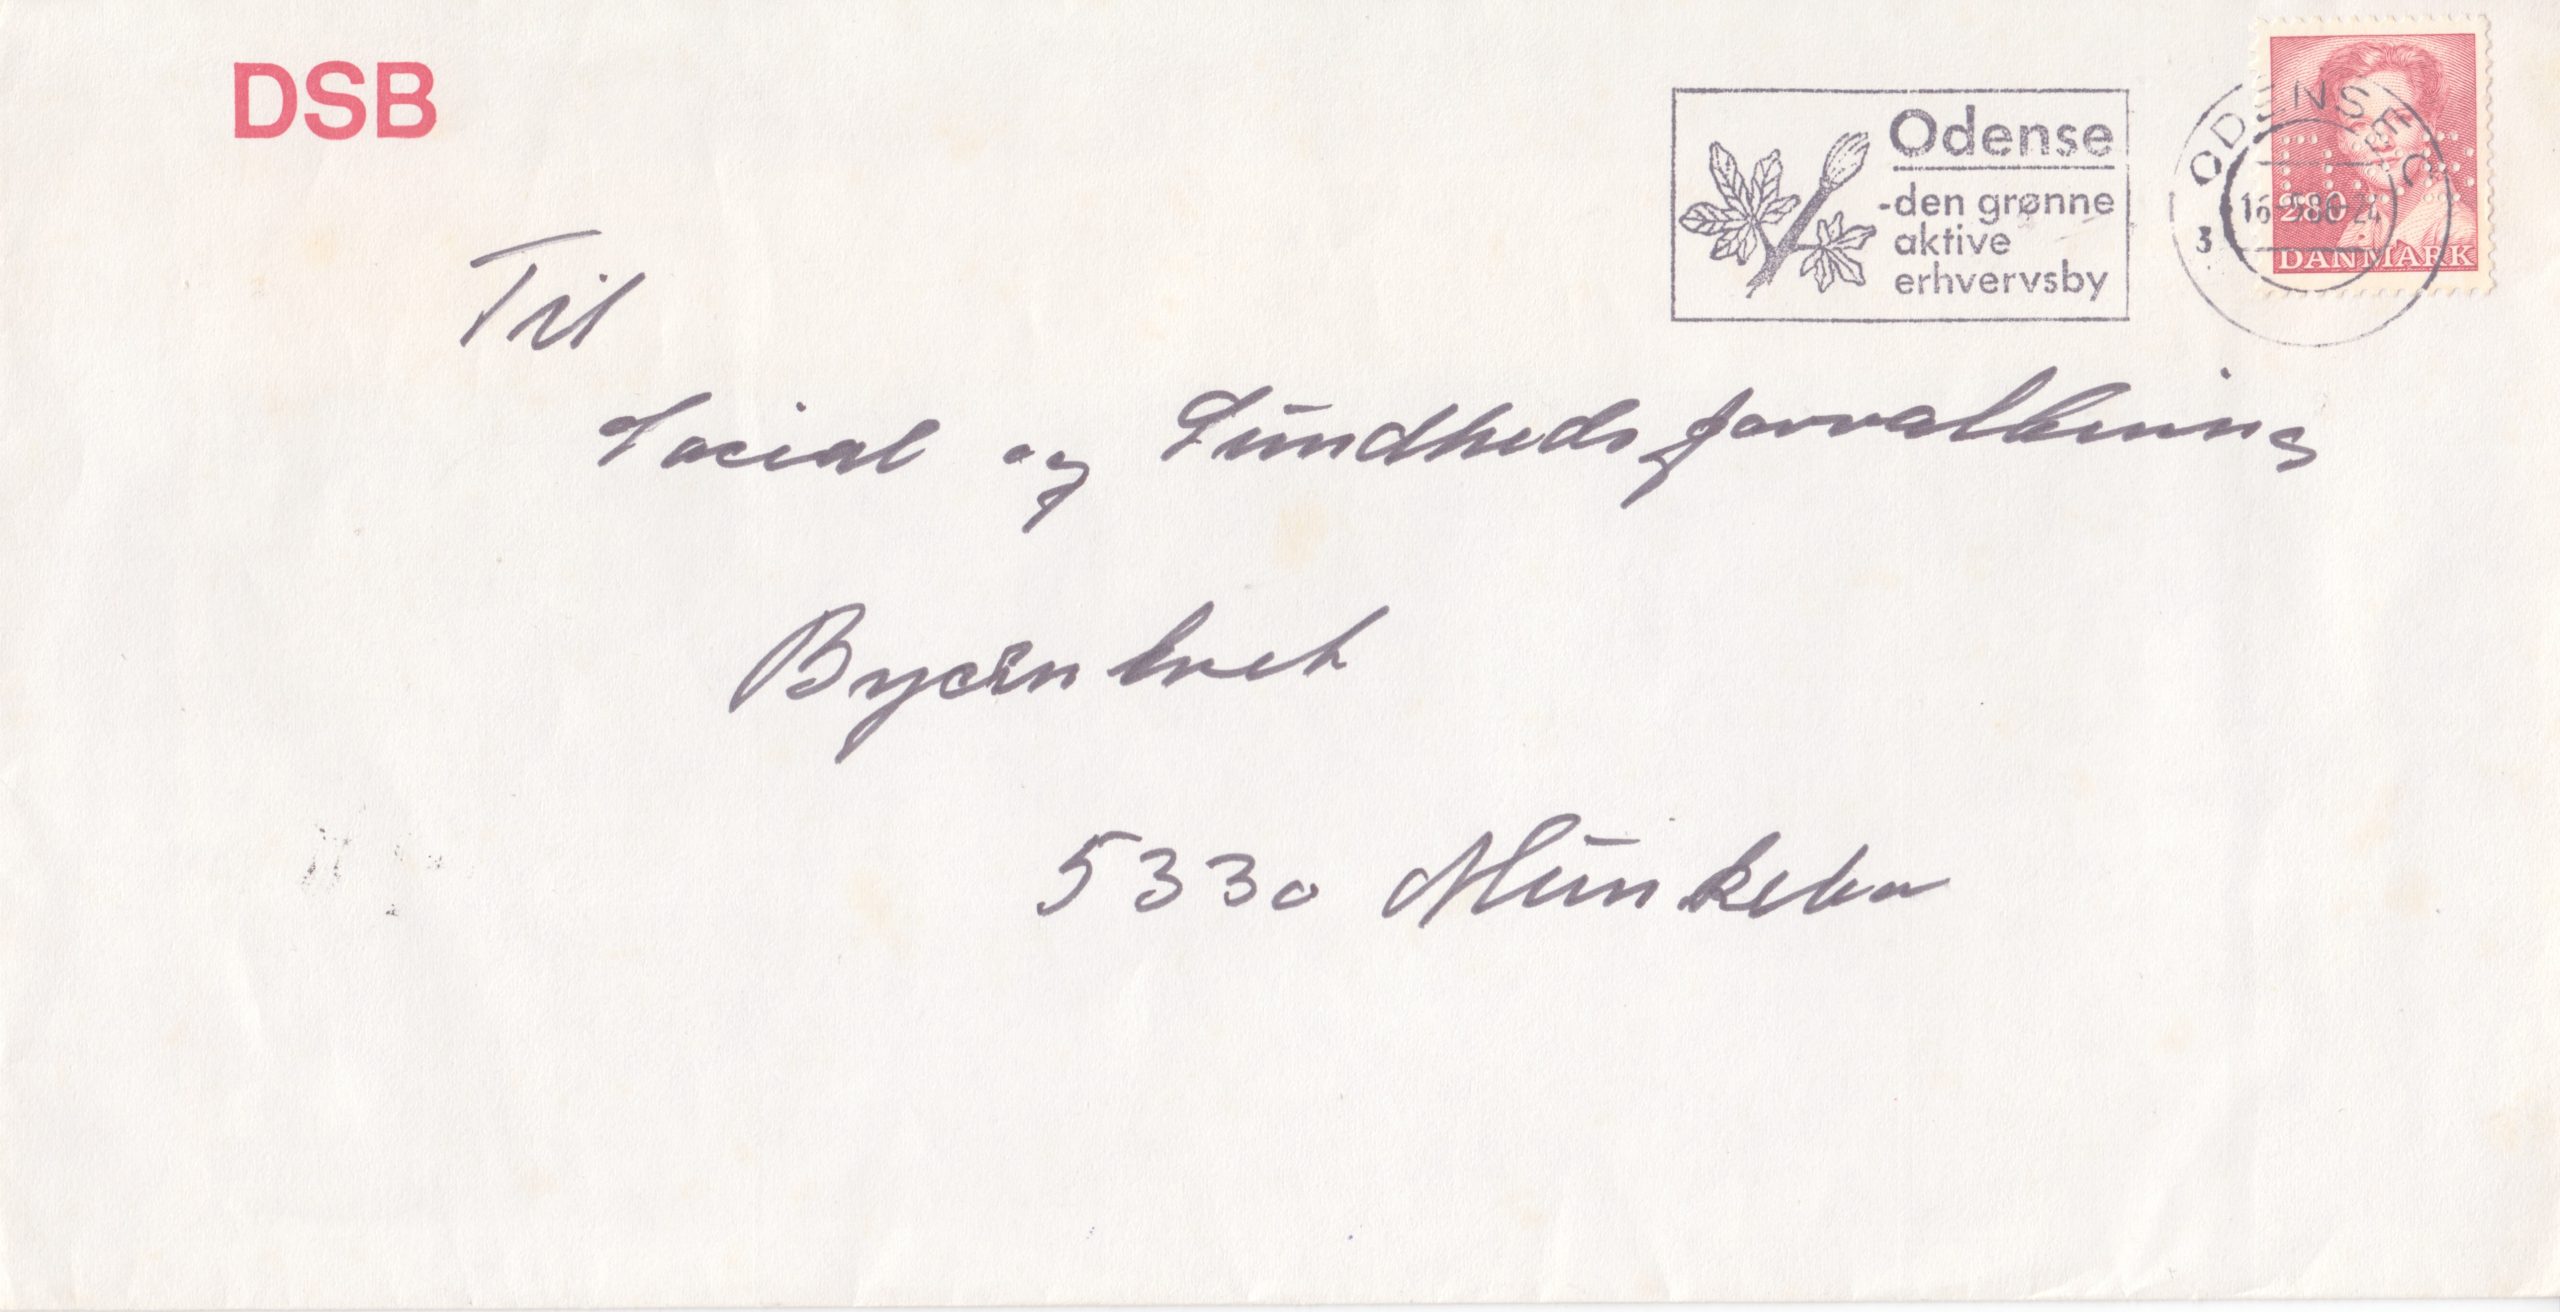 DSB
Odense
-den grønne
aktive
erhvervsby
ODENSE C
3
280
DANMARK
Til
Social og Sundhedsforvaltning
Bycentret
5330 Munkebo